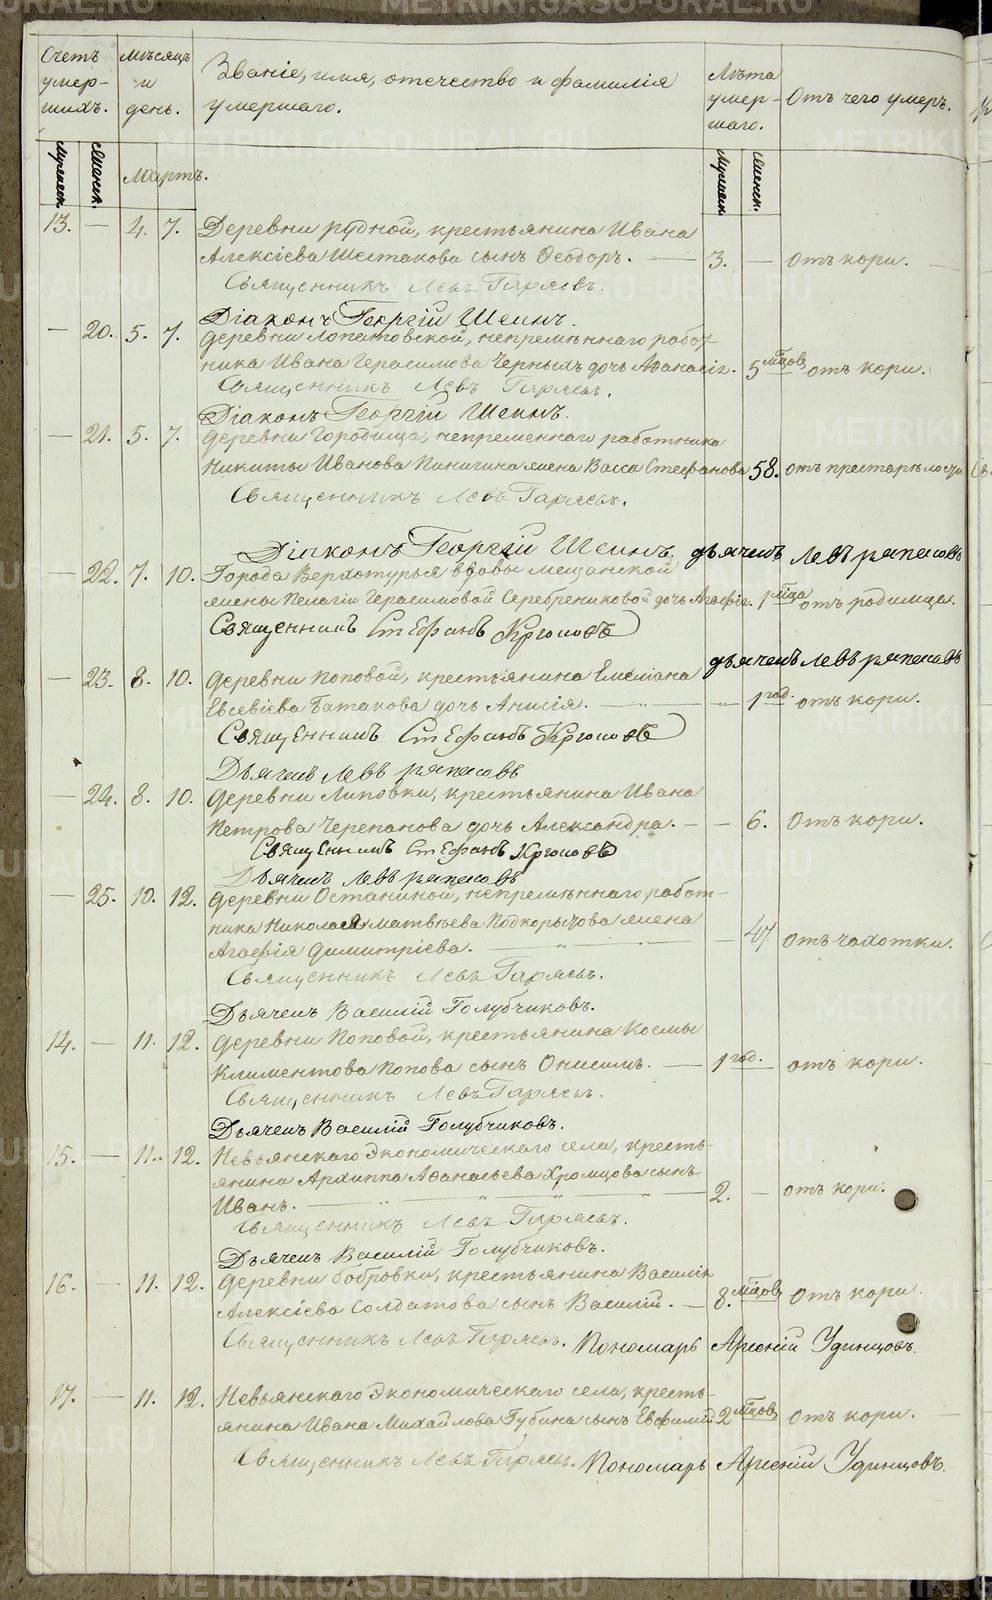 Счетъ умер-шихъ. Мѣсяцъ и день. Званіе, имя, отчество и фамилія умершаго. Лѣта умер-шаго. Отъ чего умеръ.
Мужеск. Женск. Мартъ. Мужеск. Женск.
13. — 4. 7. Деревни рудной, крестьянина Ивана
Алексіева Шестакова сынъ Ѳеодоръ. — 3. — отъ кори.
Священникъ Левъ Гаряевъ.
Діаконъ Георгій Шеинъ.
— 20. 5. 7. Деревни Лопатовской, непремѣннаго работ-
ника Ивана Герасимова Черныхъ дочь Аѳанасія. 5 мцовъ отъ кори.
Священникъ Левъ Гаряевъ.
Діаконъ Георгій Шеинъ.
— 21. 5. 7. Деревни Городища, непременнаго работника
Никиты Иванова Пинигина жена Васса Стефанова 58. отъ престарѣлости
Священникъ Левъ Гаряевъ.
Діаконъ Георгій Шеинъ. дьячекъ Левъ ряпасовъ
— 22. 7. 10. Города Верхотурья вдовы мещанской
жены Пелагіи Герасимовой Серебрениковой дочь Агафія. 1 мца отъ родимца.
Священникъ Стефанъ Крюковъ
дьячекъ Левъ ряпасовъ
— 23. 8. 10. Деревни Поповой, крестьянина Емеліана
Евсевіева Батакова дочь Анисія. — „ — 1 год. отъ кори.
Священникъ Стефанъ Крюковъ
Дьячекъ Левъ ряпасовъ
— 24. 8. 10. Деревни Липовки, крестьянина Ивана
Петрова Черепанова дочь Александра. — — 6. Отъ кори.
Священникъ Стефанъ Крюковъ
Дьячекъ Левъ ряпасовъ
— 25. 10. 12. Деревни Останиной, непремѣннаго работ-
ника Николая Матвѣева Подкорытова жена
Агафія Димитріева. — „ — „ — 47. отъ чахотки.
Священникъ Левъ Гаряевъ.
Дьячекъ Василій Голубчиковъ.
14. — 11. 12. Деревни Поповой, крестьянина Космы
Климентова Попова сынъ Онисимъ. — 1 год. отъ кори.
Священникъ Левъ Гаряевъ.
Дьячекъ Василій Голубчиковъ.
15. — 11. 12. Невьянскаго Экономическаго села, кресть-
янина Архиппа Аѳанасьева Хромцова сынъ
Иванъ. — „ — „ — „ — „ — 2. — отъ кори.
Священникъ Левъ Гаряевъ.
Дьячекъ Василій Голубчиковъ.
16. — 11. 12. Деревни бобровки, крестьянина Василія
Алексіева Солдатова сынъ Василій. — 8. мцовъ Отъ кори.
Священникъ Левъ Гаряевъ. Пономарь Арсеній Удинцовъ.
17. — 11. 12. Невьянскаго Экономическаго села, кресть-
янина Ивана Михайлова Губина сынъ Евфимій 2 мцовъ отъ кори.
Священникъ Левъ Гаряевъ. Пономарь Арсеній Удинцовъ.
METRIKI.GASO-URAL.RU